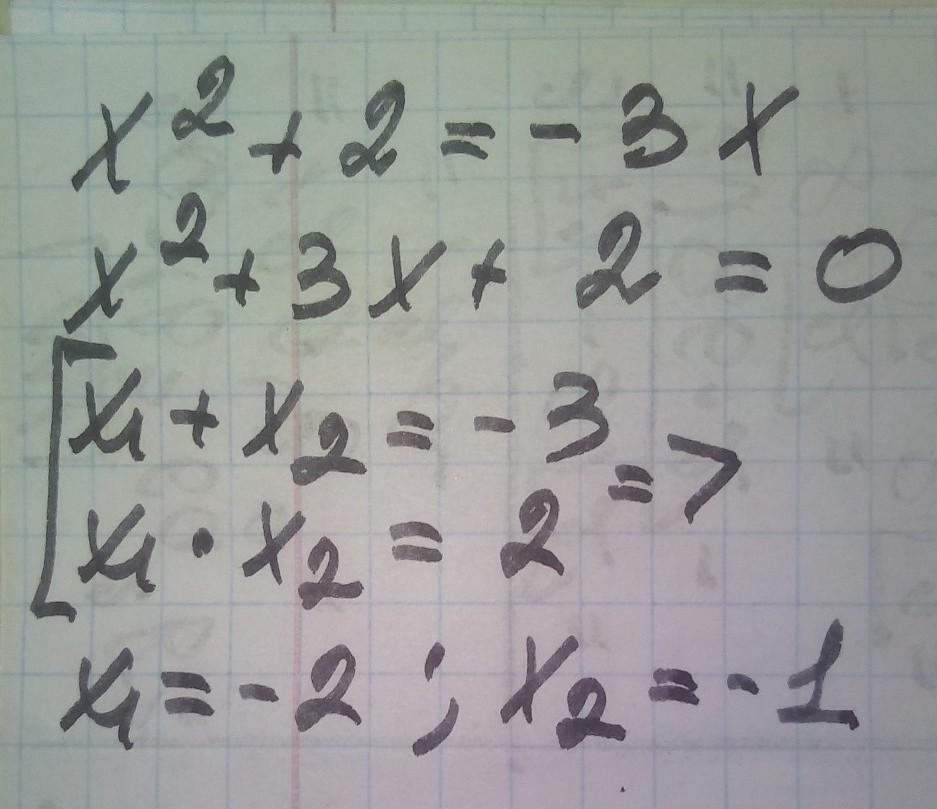 x² + 2 = - 3x
x² + 3x + 2 = 0
[ x₁ + x₂ = - 3
x₁ · x₂ = 2 =>
x₁ = - 2 ; x₂ = - 1